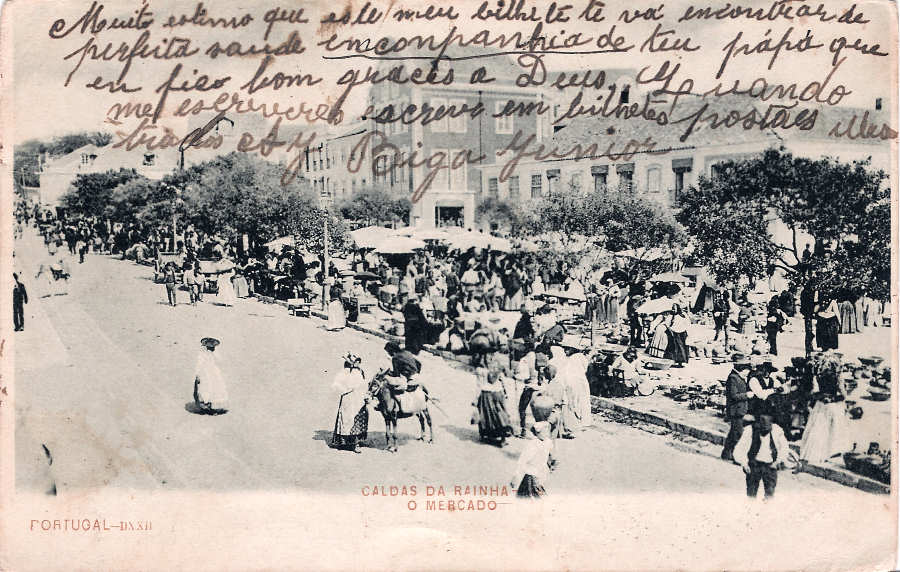 Muito estimo que este meu bilhete te vá encontrar de
perfeita saude emconpanhia de teu pápá que
eu fico bom graças a Deus. Quando
me escreveres escreve em bilhetes postaes illus
trados
Beiga Junior
CALDAS DA RAINHA
O MERCADO
PORTUGAL—DXXII